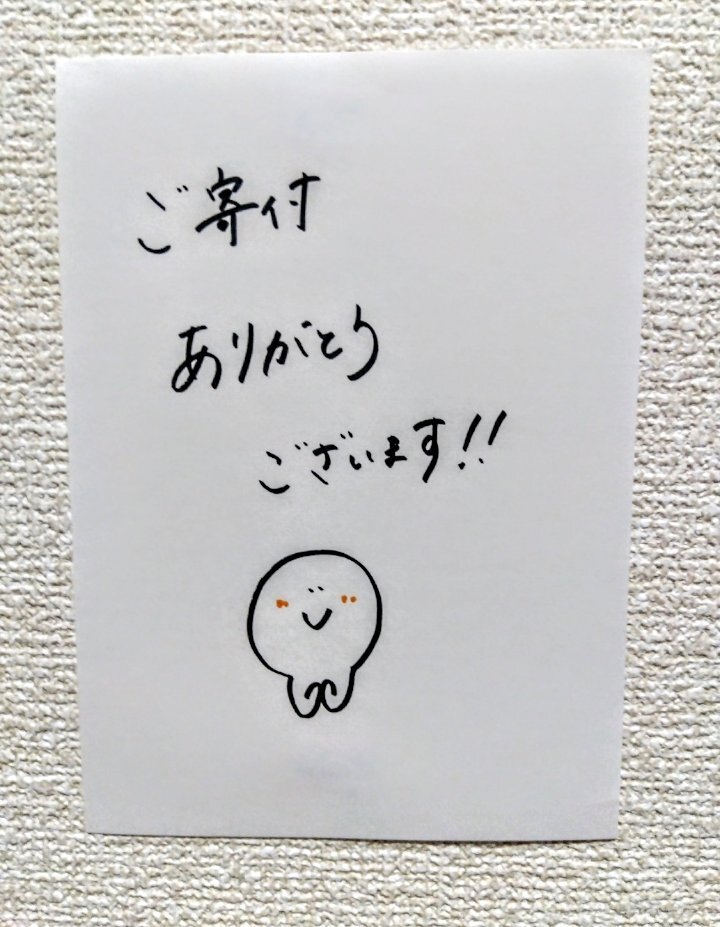 ご寄付
ありがとう
ございます!!